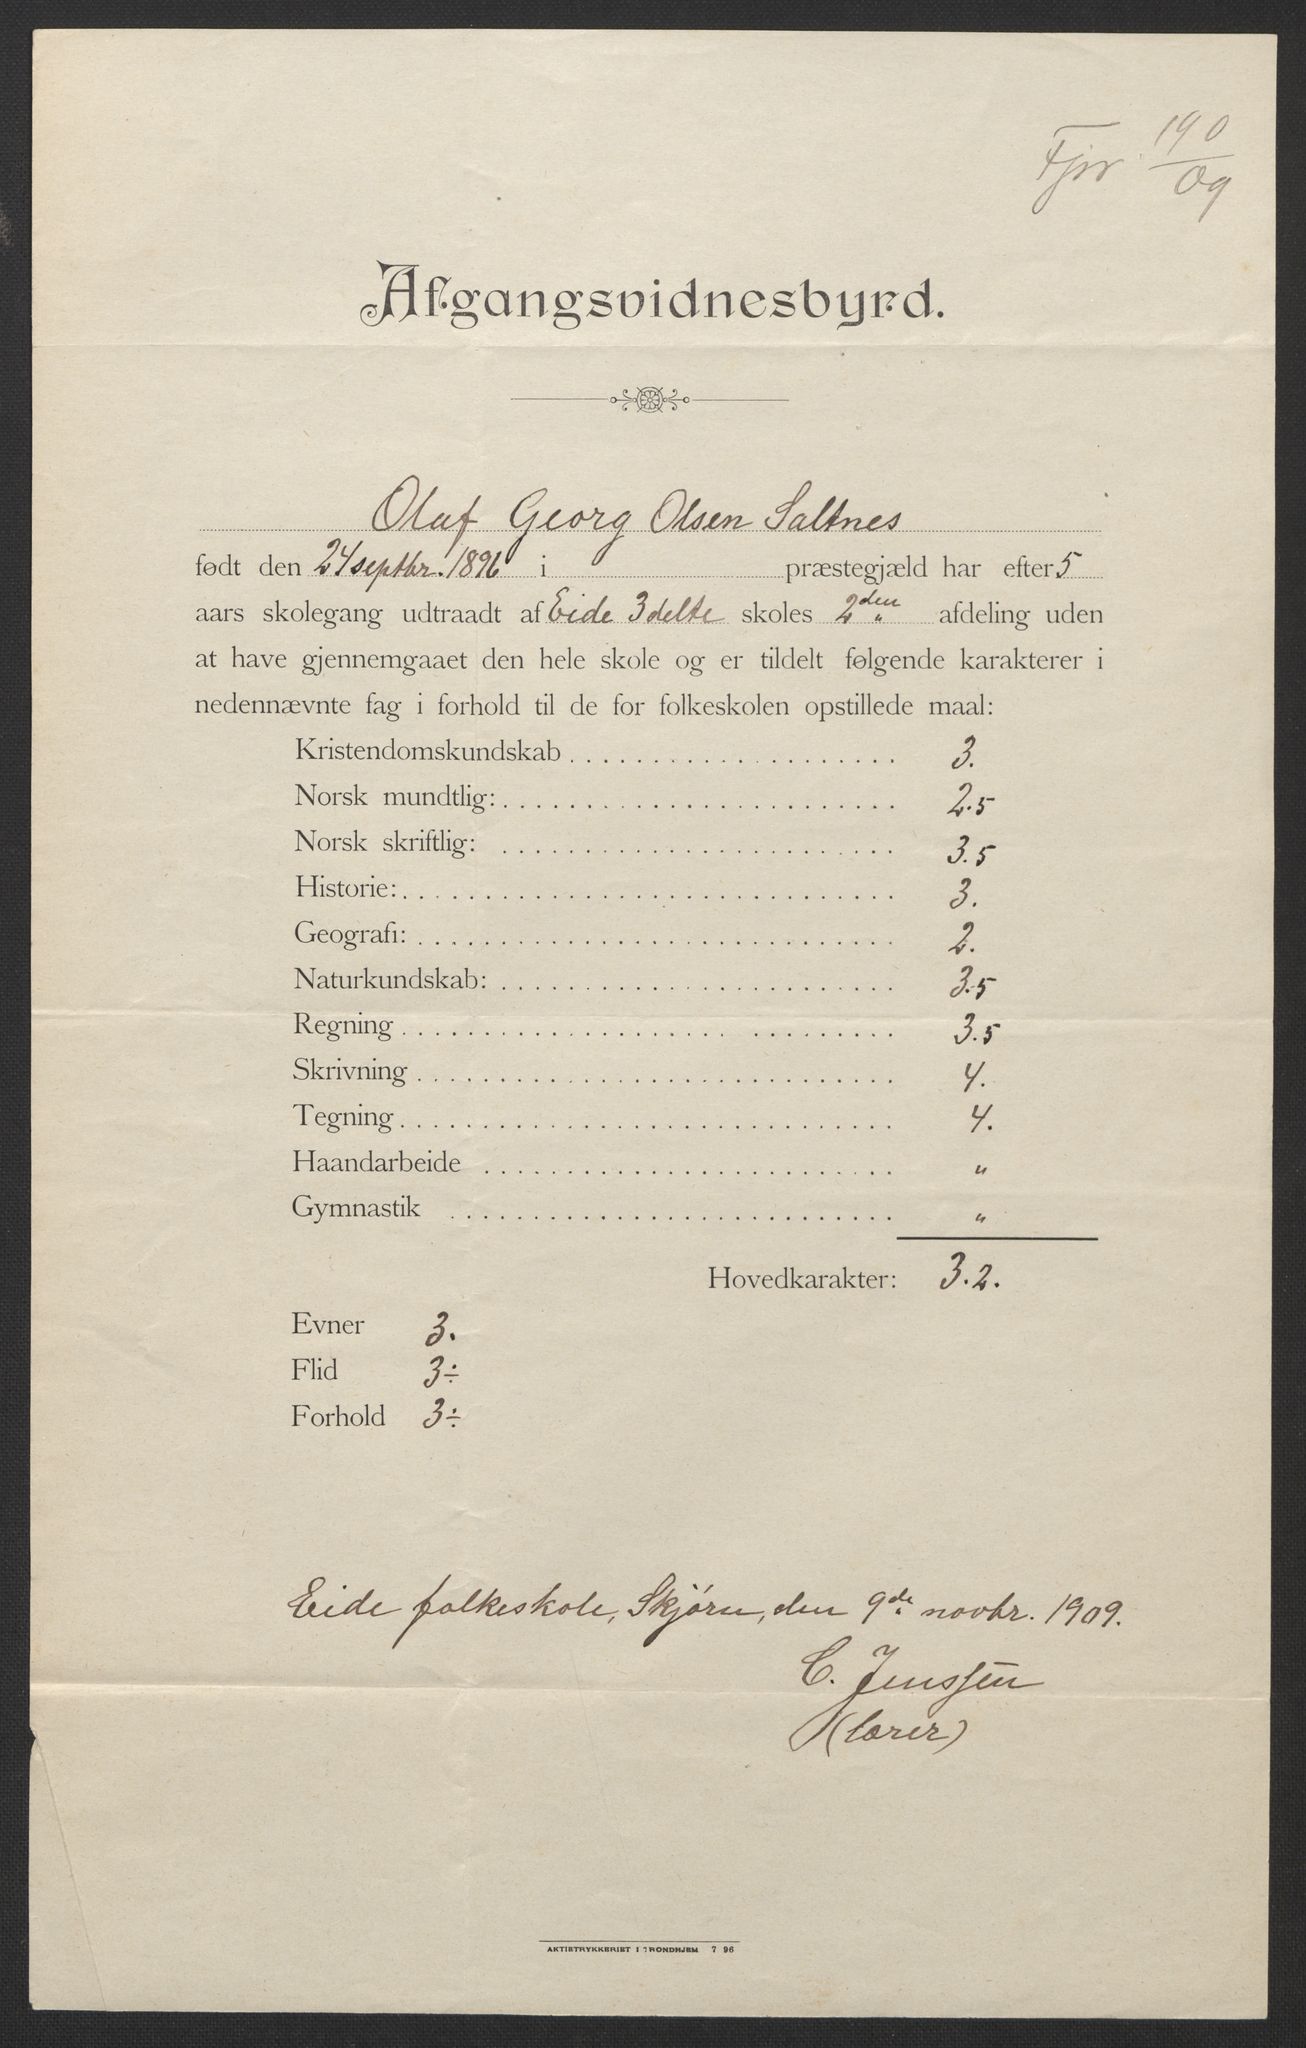 Fjnr. 190/09
Afgangsvidnesbyrd.
Olaf Georg Olsen Saltnes
født den 24 septbr. 1896 i præstegjæld har efter 5
aars skolegang udtraadt af Eide 3 delte skoles 2den afdeling uden
at have gjennemgaaet den hele skole og er tildelt følgende karakterer i
nedennævnte fag i forhold til de for folkeskolen opstillede maal:
Kristendomskundskab . . . . . . . . . . . . . . . . . . . . 3.
Norsk mundtlig: . . . . . . . . . . . . . . . . . . . . . . . . 2.5
Norsk skriftlig: . . . . . . . . . . . . . . . . . . . . . . . . 3.5
Historie: . . . . . . . . . . . . . . . . . . . . . . . . . . . . . 3.
Geografi: . . . . . . . . . . . . . . . . . . . . . . . . . . . . 2.
Naturkundskab: . . . . . . . . . . . . . . . . . . . . . . . . 3.5
Regning . . . . . . . . . . . . . . . . . . . . . . . . . . . . 3.5
Skrivning . . . . . . . . . . . . . . . . . . . . . . . . . . . . 4.
Tegning . . . . . . . . . . . . . . . . . . . . . . . . . . . . . 4.
Haandarbeide . . . . . . . . . . . . . . . . . . . . . . . . . "
Gymnastik . . . . . . . . . . . . . . . . . . . . . . . . . . . "
Hovedkarakter: 3.2.
Evner 3.
Flid 3÷
Forhold 3÷
Eide folkeskole, Skjørn, den 9de novbr. 1909.
C. Jenssen
(lærer)
AKTIETRYKKERIET I TRONDHJEM 7 96